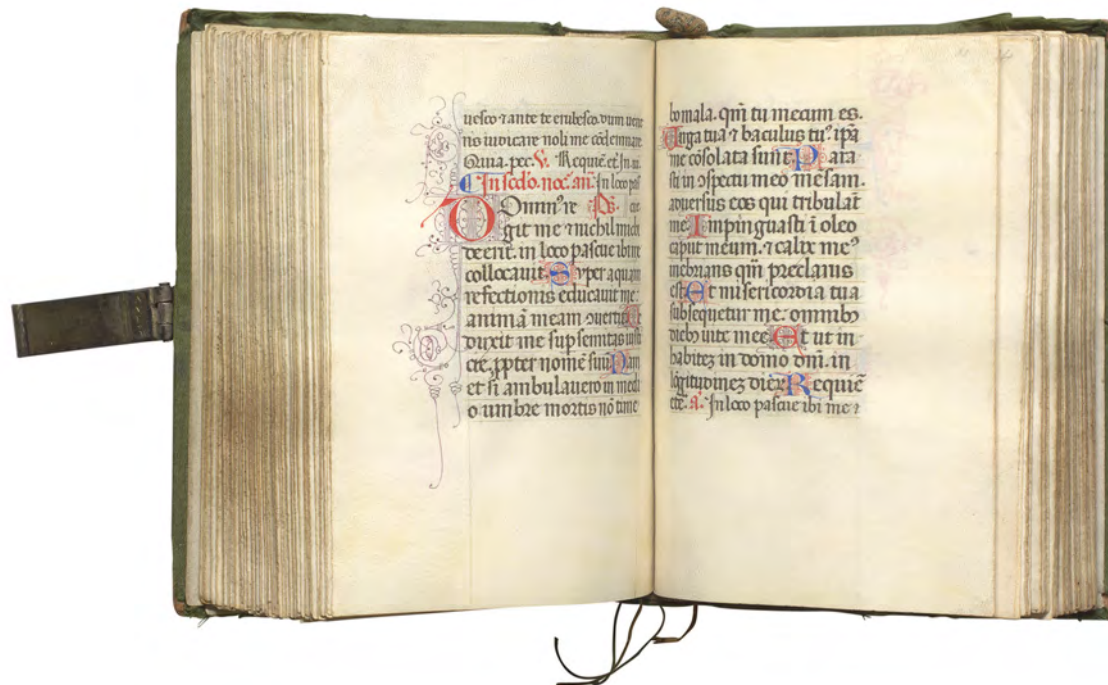 uesco ⁊ ante te erubesco. dum uene
ris iudicare noli me cōdemnare
Quia. pec. V. Requiē et. In. ui.
In secḋo. noc̄. an̄. In loco pas
Domin⁹ re p̄s. cte
git me ⁊ nichil michi
deerit. in loco pascue ibi me
collocauit. Syper aquam
refectionis educauit me:
animā meam ꝯuertit Et
duxit me sup semitas iusti
cie. ꝓpter nomē suū Nam
et si ambulauero in medi
o umbre mortis nō time
bo mala. qm̄ tu mecum es.
Uirga tua ⁊ baculus tu⁹ ipā
me cōsolata sunt. Para
sti in ꝯspectu meo mēsam.
aduersus eos qui tribulāt
me. Impinguasti ī oleo
caput meum. ⁊ calix me⁹
inebrians qm̄ preclarus
est. Et misericordia tua
subsequetur me. omnibꝫ
diebꝫ uite mee. Et ut in
habitez in domo dn̄i. in
lōgitudinez dierꝝ Requiē
ete. a. In loco pascue ibi me ⁊